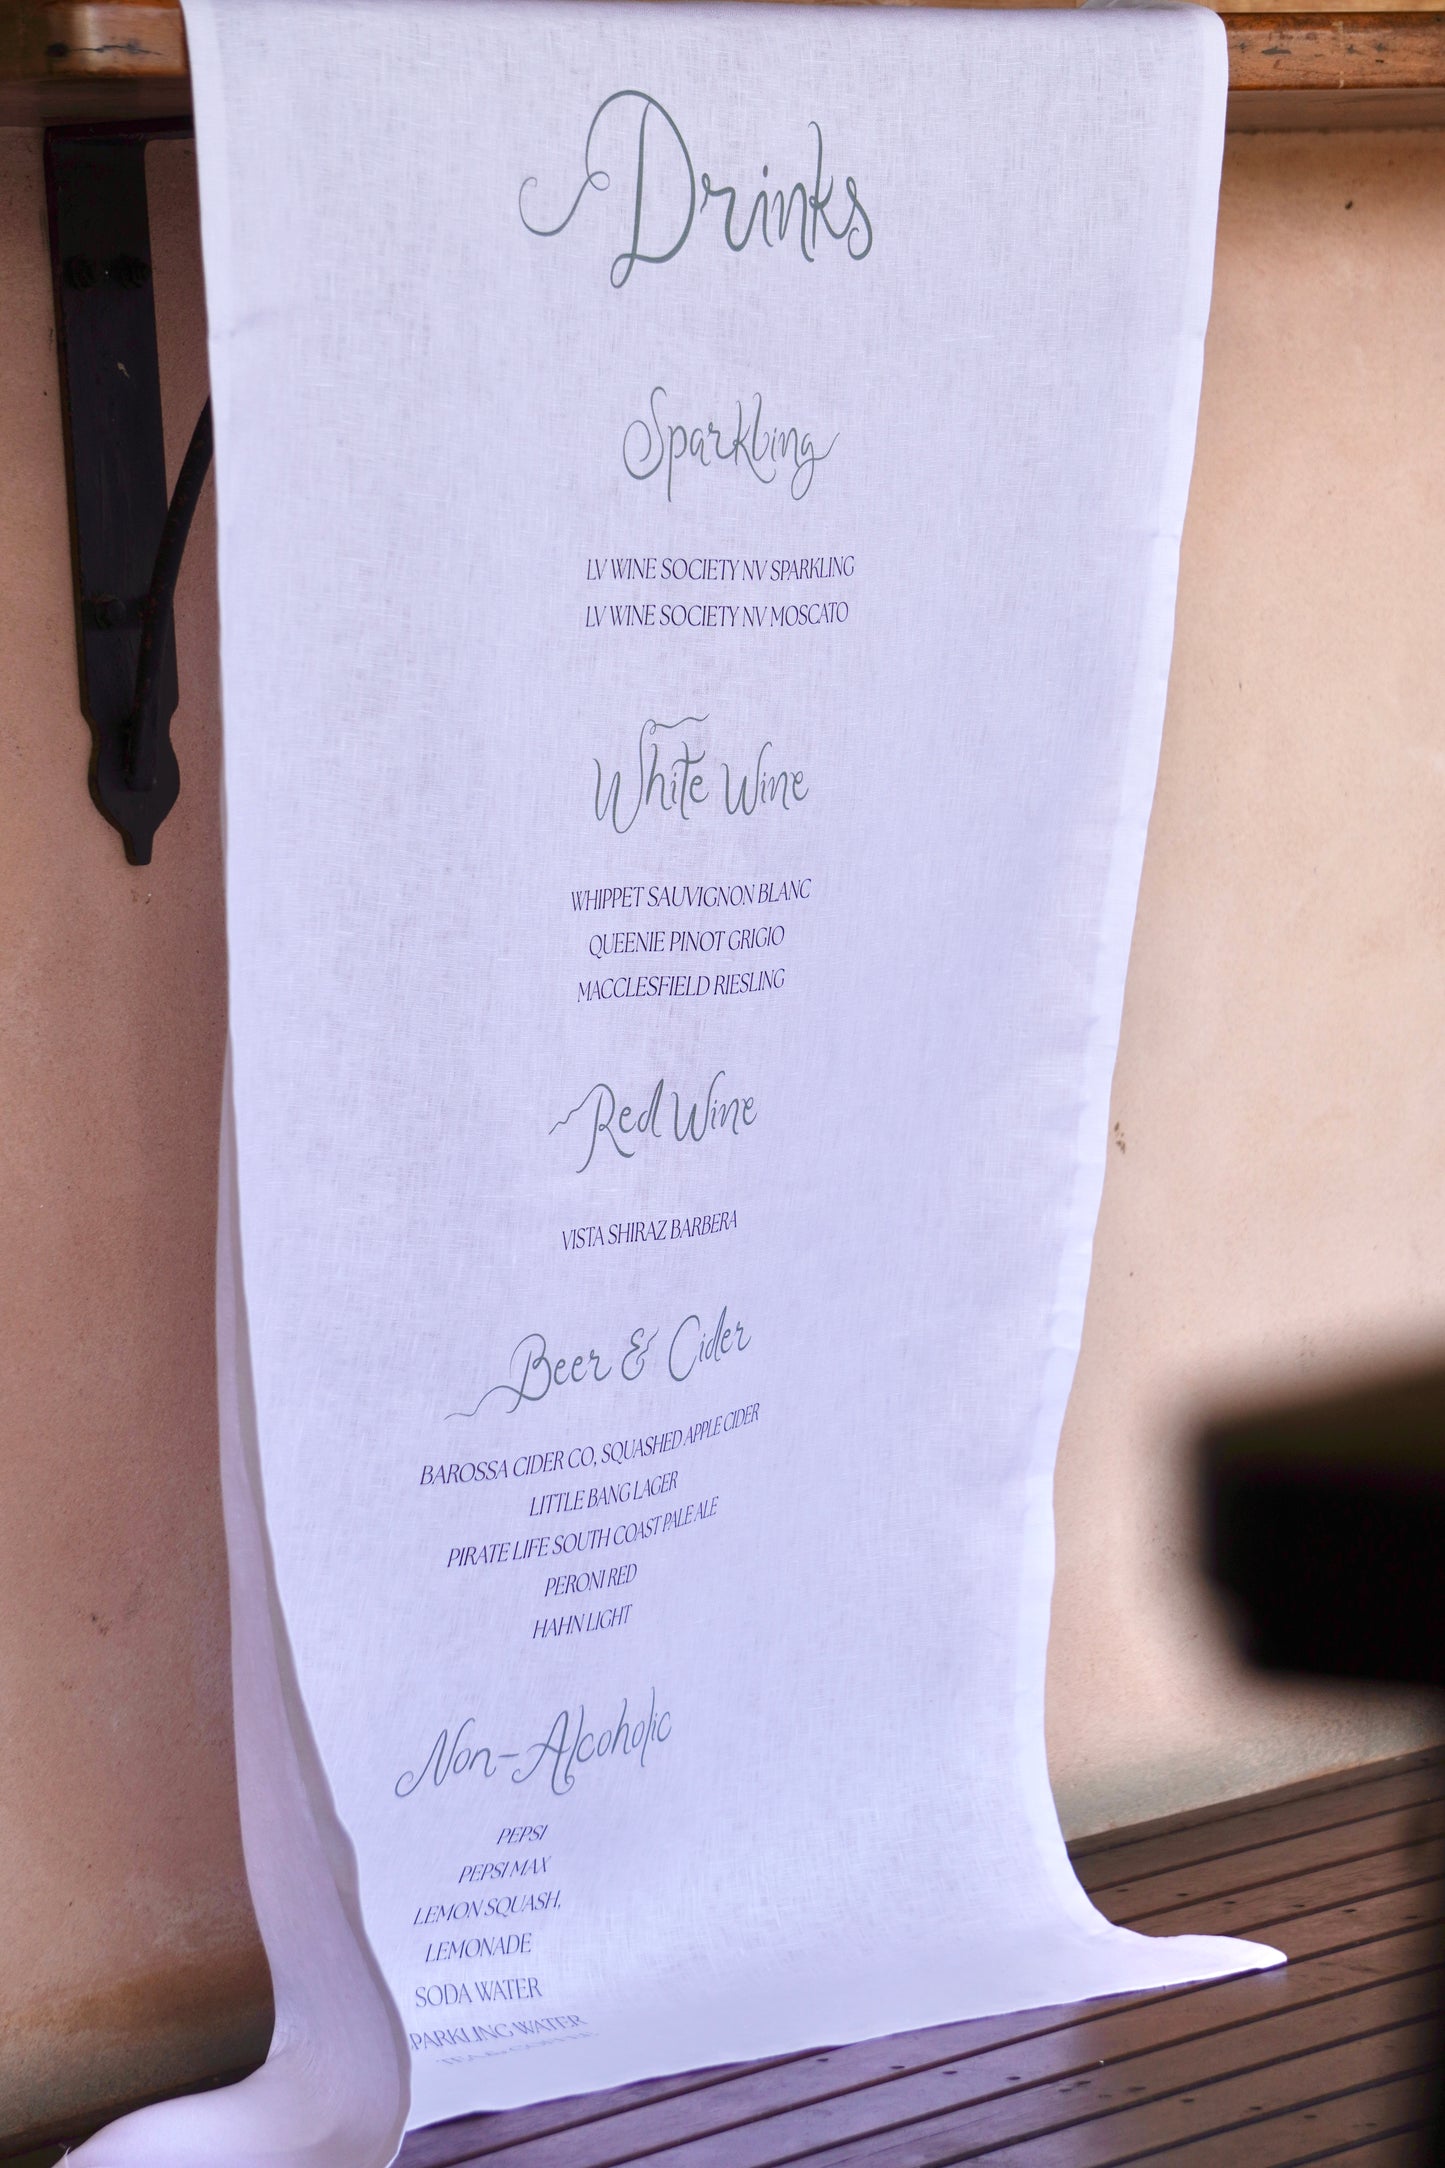 Drinks
Sparkling
LV WINE SOCIETY NV SPARKLING
LV WINE SOCIETY NV MOSCATO
White Wine
WHIPPET SAUVIGNON BLANC
QUEENIE PINOT GRIGIO
MACCLESFIELD RIESLING
Red Wine
VISTA SHIRAZ BARBERA
Beer & Cider
BAROSSA CIDER CO, SQUASHED APPLE CIDER
LITTLE BANG LAGER
PIRATE LIFE SOUTH COAST PALE ALE
PERONI RED
HAHN LIGHT
Non-Alcoholic
PEPSI
PEPSI MAX
LEMON SQUASH,
LEMONADE
SODA WATER
SPARKLING WATER